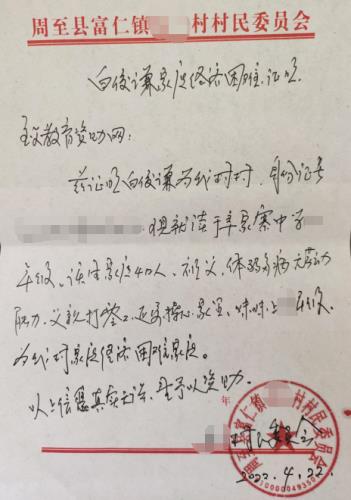 周至县富仁镇 村村民委员会
白俊谦家庭经济困难证明
至政教育资助网:
兹证明白俊谦为我村村民,身份证号
现就读于辛家寨中学
年级。该生家庭4口人、祖父、体弱多病无劳动
能力、父亲打零工还要操心家里,妹妹上 年级,
为我村家庭经济困难家庭。
以上信息真实无误,望予以资助。
年
2022.4.22
周至县富仁镇 村村民委员会